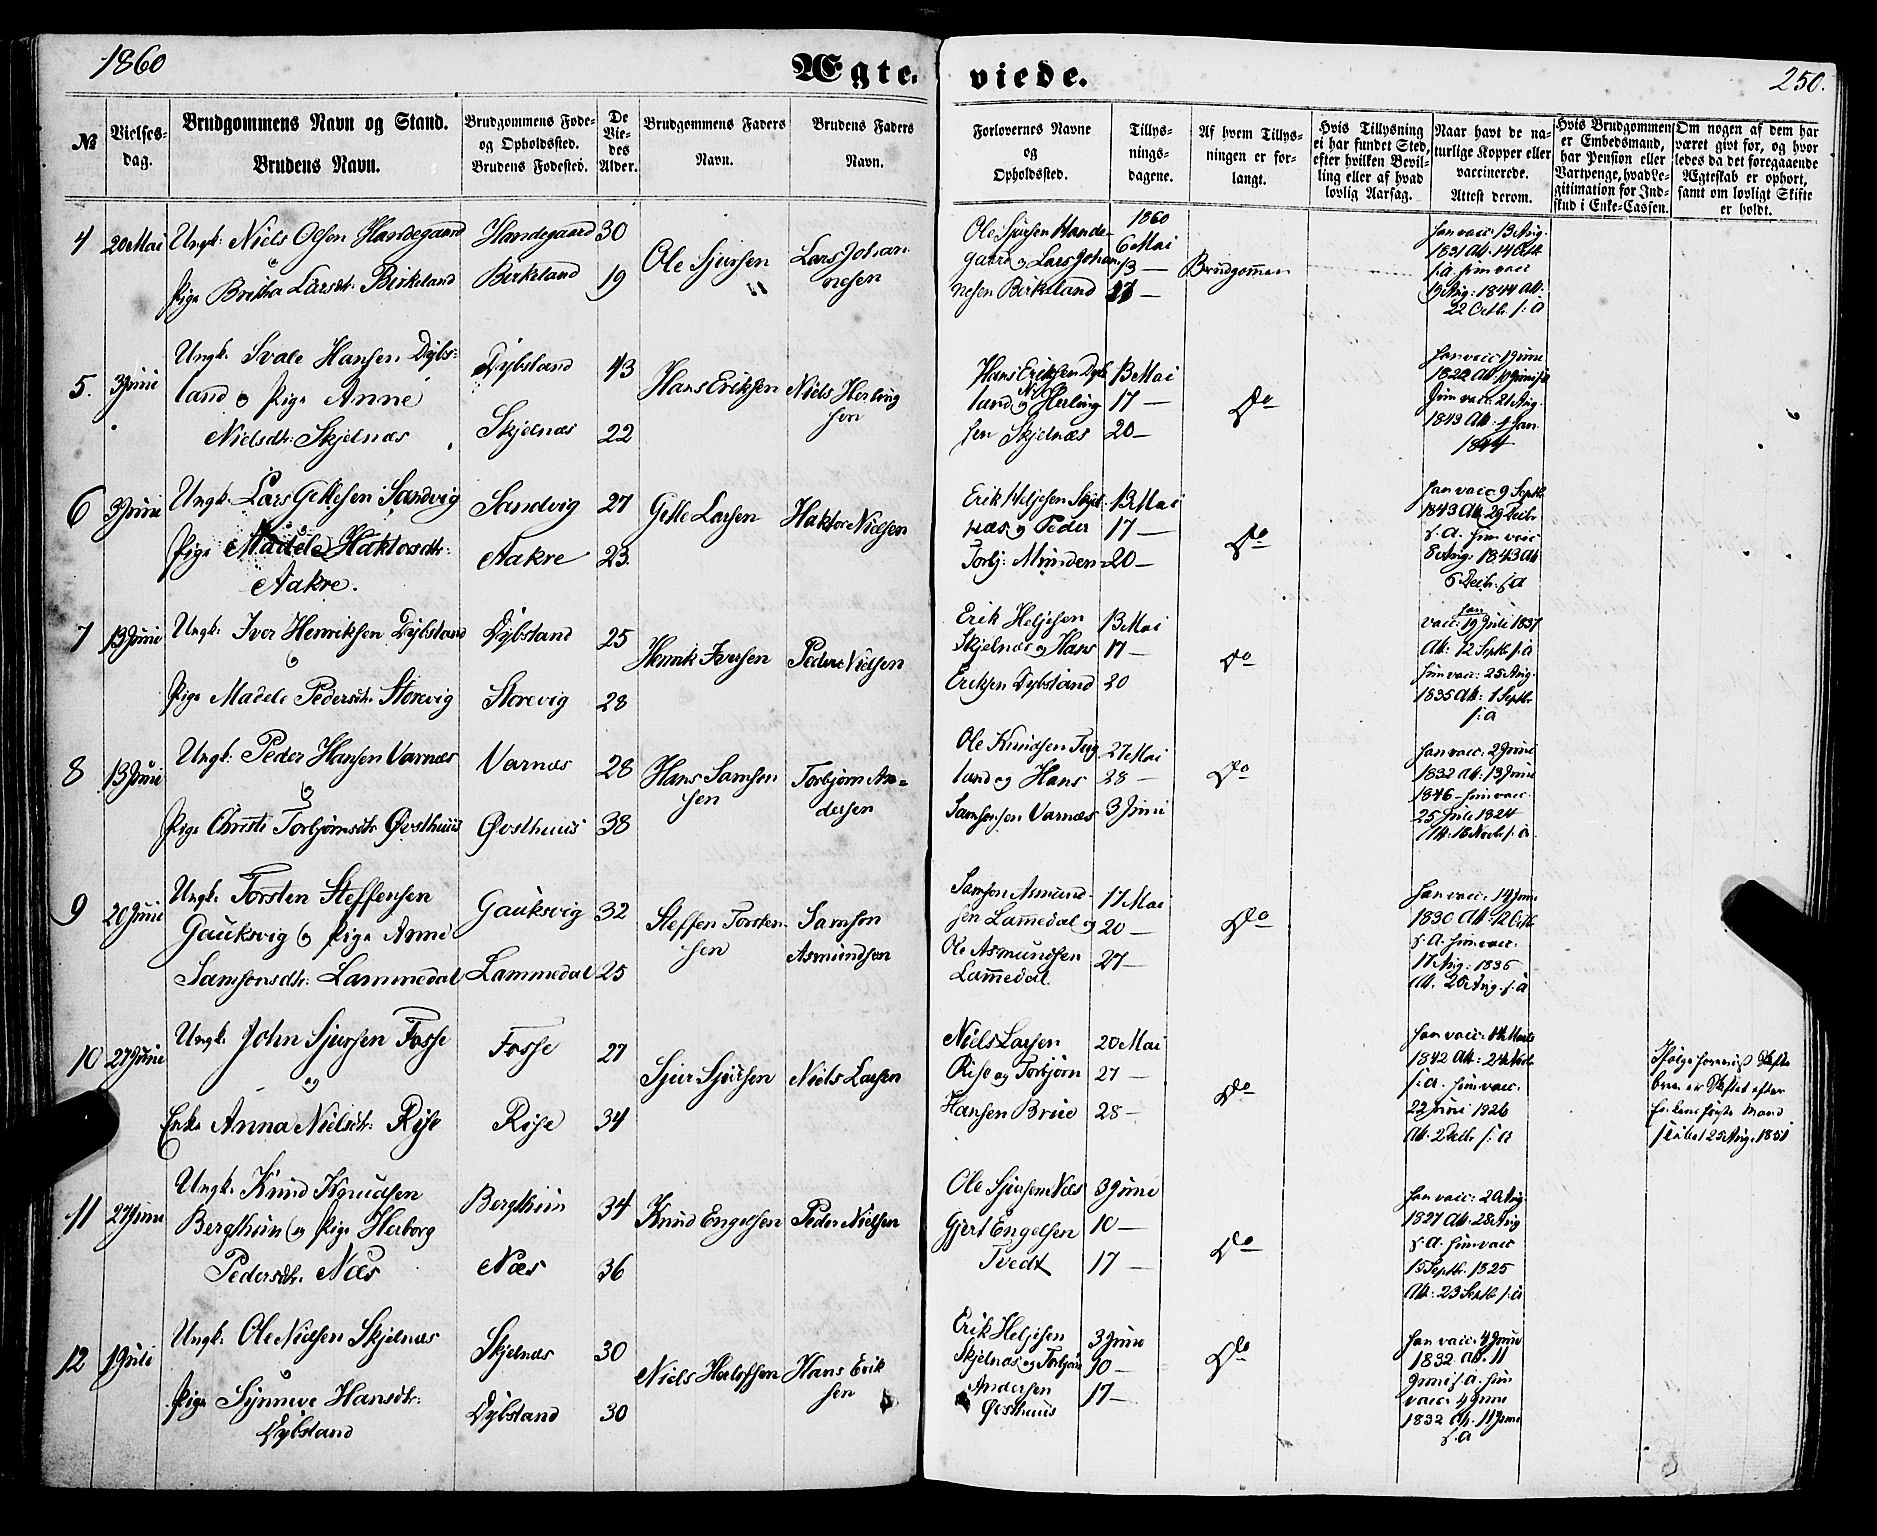 1860
Ægte-
viede.
250.
№
Vielses-
dag.
Brudgommens Navn og Stand.
Brudens Navn.
Brudgommens Føde-
og Opholdssted.
Brudens Fødested.
De
Vie-
des
Alder.
Brudgommens Faders
Navn.
Brudens Faders
Navn.
Forlovernes Navne
og
Opholdssted.
Tillys-
nings-
dagene.
Af hvem Tillys-
ningen er for-
langt.
Hvis Tillysning
ei har fundet Sted,
efter hvilken Bevil-
ling eller af hvad
lovlig Aarsag.
Naar havt de na-
turlige Kopper eller
vaccinerede.
Attest derom.
Hvis Brudgommen
er Embedsmand,
har Pension eller
Vartpenge, hvad Le-
gitimation for Ind-
skud i Enke-Cassen.
Om nogen af dem har
været givt før, og hvor
ledes da det foregaaende
Ægteskab er ophørt,
samt om lovligt Skifte
er holdt.
4 20 Mai
Ungk: Niels Olsen Handegaard
og
Pige Britha Larsdtr. Birkeland
Handegaard 30
Birkeland 19
Ole Sjursen
Lars Johan
nesen
Ole Sjursen Hande-
gaard og Lars Johan
nesen Birkeland
1860
6 Mai
13 —
17 —
Brudgommen
han vacc: 13 Aug.
1831 Att. 14 Octb
s: a hun vacc
19 Aug: 1844 Att.
22 Octb. s: a
5. 3 Juni
Ungk. Svale Hansen Dybs-
land og Pige Anne
Nielsdtr: Skjelnæs
Dybsland 43
Skjelnæs 22
Hans Eriksen
Niels Herlog
sen
Hans Eriksen Dybs
land og Niels Herlog
sen Skjelnæs
13 Mai
17 —
20 —
Do
1822
hun vacc: 21 Aug.
1843 Att. 4 Jan.
1844
6 3 Juni
Ungk. Lars Gelle sen Sandvig
og
Pige Madele Haktorsdtr:
Aakre.
Sandvig 27
Aakre 23
Larsen
Haktor Nielsen
Erik Heljesen Skjel
næs og Peder
Torbj: Munden
13 Mai
17 —
20 —
Do
han vacc 9 Septb.
1843 Att. 29 Decbr
s. a. hun vacc
8 Aug. 1843 Att
6 Decb. s a
7 13 Juni
Ungk. Iver Henriksen Dybsland
og
Pige Madele Pedersdtr. Storevig
Dybsland 25
Storevig 28
Henrik Iversen
Peder Nielsen
Erik Heljesen
Skjelnæs og Hans
Eriksen Dybsland
13 Mai
17 —
20
Do
han
vacc: 19 Juli 1837
Att: 12 Septb s: a
hun vacc: 25 Aug.
1835 Att: 1 Septbr
s: a
8 13 Juni
Ungk: Peder Hansen Varnæs
og
Pige Christi Torbjørnsdtr Østhuus
Varnæs 28
Østhuus 38
Hans Samson
sen
Torbjørn An-
dersen
Ole Knudsen
land og Hans
Samsonsen Varnæs
27 Mai
28 —
3 Juni
Do
han vacc: 2 Juni
1832 Att: 13 Juni
1846 — hun vacc.
25 Juli 1824
Att: 18 Novb. s: a
9 20 Juni
Ungk. Torsten Steffensen
Gauksvig og Pige Anne
Samsonsdtr. Lammedal
Gauksvig 32
Lammedal 25
Steffen Torsten
sen
Samson
Asmundsen
Samson Asmund
sen Lammedal og
Ole Asmundsen
Lammedal
17 Mai
20 —
27 —
Do
han vacc: 14 Juni
1830 Att: 12 Octb
s. a. hun vacc:
17 Aug: 1835
Att. 20 Aug. s: a
10 27 Juni
Ungk. John Sjursen Fosse
og
Enke Anna Nielsdtr. Rise
Fosse 27
Rise 34
Sjur Sjursen
Niels Larsen
Niels Larsen
Rise og Torbjørn
Hansen Brue
20 Mai
27 —
28 —
Do
1842 Att: 24
s: a. hun vacc:
22 Juni 1826
Att. 2 Decb s: a
Ifølge
er Skiftet efter
hendes første Mand
sluttet 25 Aug. 1851
11 27 Juni
Ungk. Knud Knudsen
Bergthun og Pige Herborg
Pedersdtr. Næs
Bergthun 34
Næs 36
Knud Engelsen
Peder Nielsen
Ole Sjursen Næs
Gjert Engelsen
Tvedt
3 Juni
10 —
17 —
Do
han vacc: 20 Aug
1827 Att: 28 Aug
s. a. hun vacc
15 Septb. 1825
Att: 23 Septb s: a
12 1 Juli
Ungk: Ole Nielsen Skjelnæs
og
Pige Synneve Hansdtr:
Dybsland
Skjelnæs 30
Dybsland 30
Niels Herlofsen
Hans Erik
sen
Erik Heljesen
Skjelnæs og Torbjørn
Andersen
Østhuus
3 Juni
10 —
17 —
Do
han vacc: 4 Juni
1832 Att. 11
Juni s. a. hun
vacc: 4 Juni
1832 Att. 11 Juni
s. a